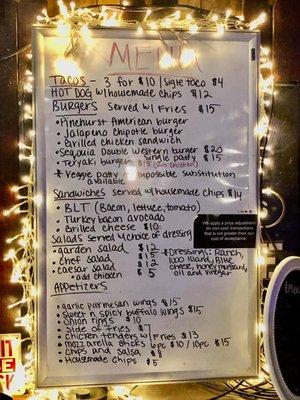 MENU
Tacos - 3 for $10 | single taco $4
HOT DOG w/housemade chips $12
Burgers served w/ Fries $15
• Pinehurst American burger
• Jalapeno chipotle burger
• Grilled chicken sandwich
• Sequoia Double western burger $20
• Teriyaki burger single patty $15 (sub chicken)
* Veggie patty impossible substitution
available
Sandwiches served w/housemade chips $14
• BLT (Bacon, lettuce, tomato)
• Turkey bacon avocado
• Grilled cheese $10
Salads served w/choice of dressing
• garden salad $12
• chef salad $15
• caesar salad $12
• add chicken $5
* Dressings: Ranch,
1000 island, Blue
cheese, honey mustard,
oil and vinegar
We apply a price adjustment
on non-cash transactions
that is not greater than our
cost of acceptance.
Appetizers
• garlic parmesan wings $15
• sweet n spicy buffalo wings $15
• Onion rings $10
• Side of fries $7
• chicken tenders w/fries $13
• mozzarella sticks 6pc $10 / 10pc $15
• Chips and salsa $8
• Housemade chips $5